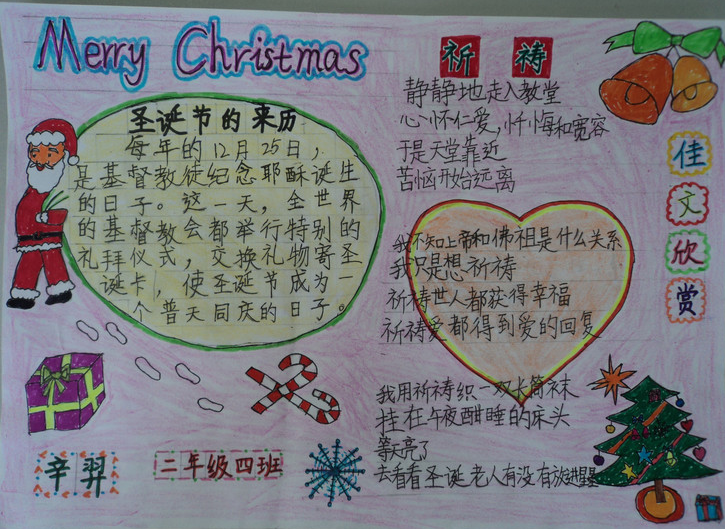 Merry Christmas
圣诞节的来历
每年的12月25日，
是基督教徒纪念耶酥诞生
的日子。这一天，全世界
的基督教会都举行特别的
礼拜仪式，交换礼物寄圣
诞卡，使圣诞节成为一
个普天同庆的日子。
辛羿
二年级四班
祈祷
静静地走入教堂
心怀仁爱，忏悔和宽容
于是天堂靠近
苦恼开始远离
我不知上帝和佛祖是什么关系
我只是想祈祷
祈祷世人都获得幸福
祈祷爱都得到爱的回复
我用祈祷织一双长筒袜
挂在午夜酣睡的床头
等天亮了
去看看圣诞老人有没有放进星星
佳
文
欣
赏